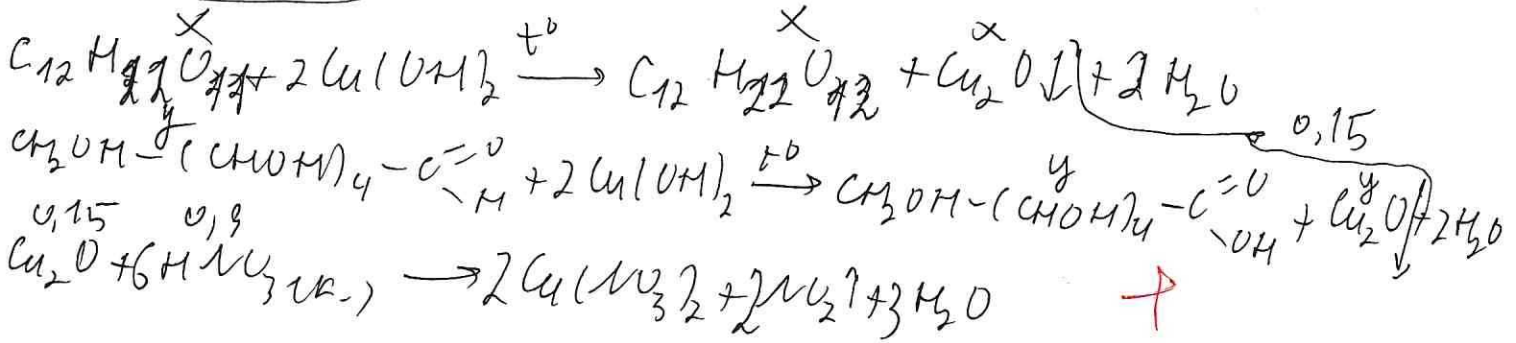 x x x
C12H22O11 + 2Cu(OH)2 t° → C12H22O12 + Cu2O↓ + 2H2O
0,15
y y y
CH2OH-(CHOH)4-C=O\H + 2Cu(OH)2 t° → CH2OH-(CHOH)4-C=O\OH + Cu2O↓ + 2H2O
0,15 0,9
Cu2O + 6HNO3(к.) → 2Cu(NO3)2 + 2NO2↑ + 3H2O +